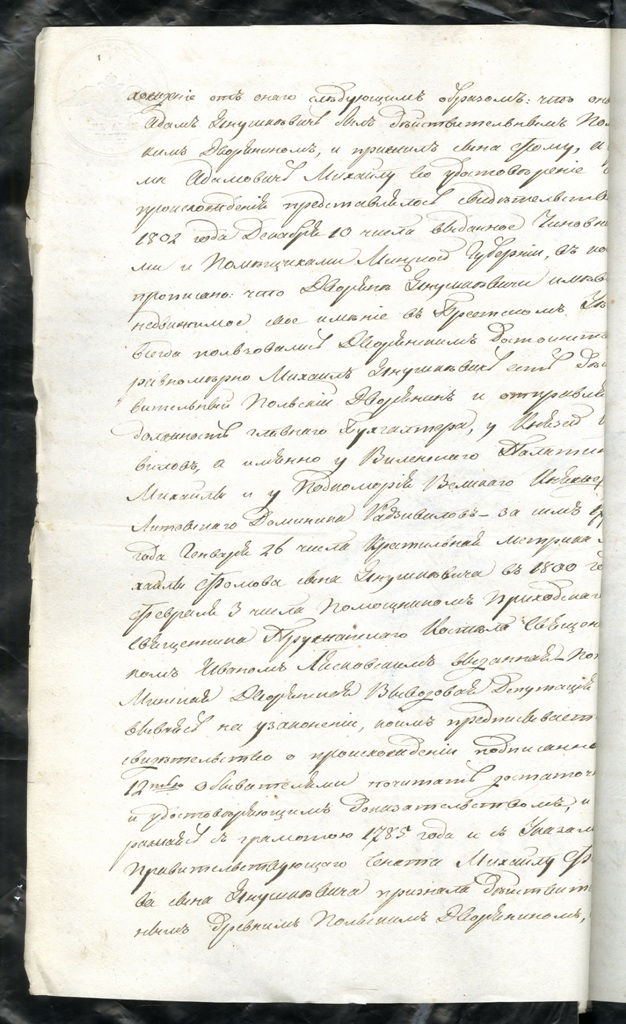 хождение отъ снаго слѣдующимъ образомъ: что он
Адамъ Янушкевичъ былъ дѣйствительнымъ Пол
кимъ Дворяниномъ, и прижилъ сына Фому, а
ма Адамовичъ Михайлу во удостовѣреніе
происхожденія представлялось свидѣтельств
1802 года Декабря 10 числа выданное Чиновн
ми и Помѣщиками Минской Губерніи, въ ко
прописано: что Дворяне Янушкевичи имѣв
недвижимое свое имѣніе въ Брестскомъ
всегда пользовались Дворянскимъ Достоинст
равномѣрно Михаилъ Янушкевичъ есть Дѣй
вительный Польскій Дворянинъ и отправля
должность главнаго Бухгалтера, у Князей
виловъ, а именно у Виленскаго Палатин
Михайлы и у Подкоморія Великаго Княжес
Литовскаго Доминика Радзивиловъ – за симъ 17
года Генваря 26 числа Крательная метрика
хайлы Фомова сына Янушкевича въ 1800 го
Февраля 3 числа Помощникомъ Приходскаг
Священника Костела Священ
комъ Иваномъ выданная – По
Минская Дворянская Выводовая Депутація
на узаконеніи, коимъ предписывает
свидѣтельство о происхожденіи подписанно
12тью Обывателями почитать достаточ
и удостовѣряющимъ Доказательствомъ, и
съ грамотою 1785 года и съ Указам
Правительствующаго Сената Михайлу Фо
ва сына Янушкевича признала Дѣйствит
нымъ Древнимъ Польскимъ Дворяниномъ,